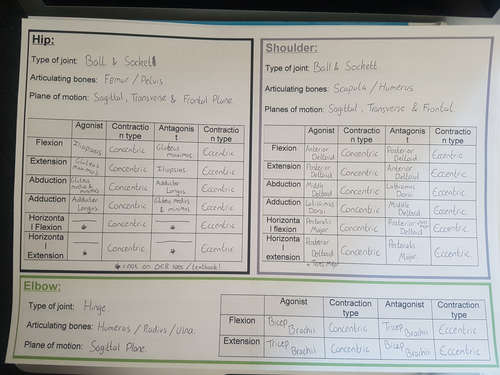 Hip:
Type of joint: Ball & Socket
Articulating bones: Femur / Pelvis.
Plane of motion: Sagittal, Transverse & Frontal Plane.
Agonist Contractio Antagonis Contractio
n type t n type
Flexion Iliopsoas Concentric Gluteus maximus Eccentric
Extension Gluteus maximus Concentric Iliopsoas Eccentric
Abduction Gluteus medius & minimus Concentric Adductor Longus Eccentric
Adduction Adductor Longus Concentric Gluteus medius & minimus Eccentric
Horizonta
l Flexion * Concentric * Eccentric
Horizonta
l
extension * Concentric * Eccentric
* = not on OCR spec / textbook!
Shoulder:
Type of joint: Ball & Socket.
Articulating bones: Scapula / Humerus.
Planes of motion: Sagittal, Transverse & Frontal.
Agonist Contractio Antagonis Contractio
n type t n type
Flexion Anterior Deltoid Concentric Posterior Deltoid Eccentric
Extension Posterior Deltoid Concentric Anterior Deltoid Eccentric
Abduction Middle Deltoid Concentric Latissimus Dorsi Eccentric
Adduction Latissimus Dorsi Concentric Middle Deltoid Eccentric
Horizonta
l flexion Pectoralis Major Concentric Posterior Deltoid Eccentric
Horizonta
l
extension Posterior Deltoid + Teres Major Concentric Pectoralis Major Eccentric.
Elbow:
Type of joint: Hinge.
Articulating bones: Humerus / Radius / Ulna.
Plane of motion: Sagittal Plane.
Agonist Contraction Antagonist Contraction
type type
Flexion Bicep Brachii Concentric Tricep Brachii Eccentric
Extension Tricep Brachii Concentric Bicep Brachii Eccentric